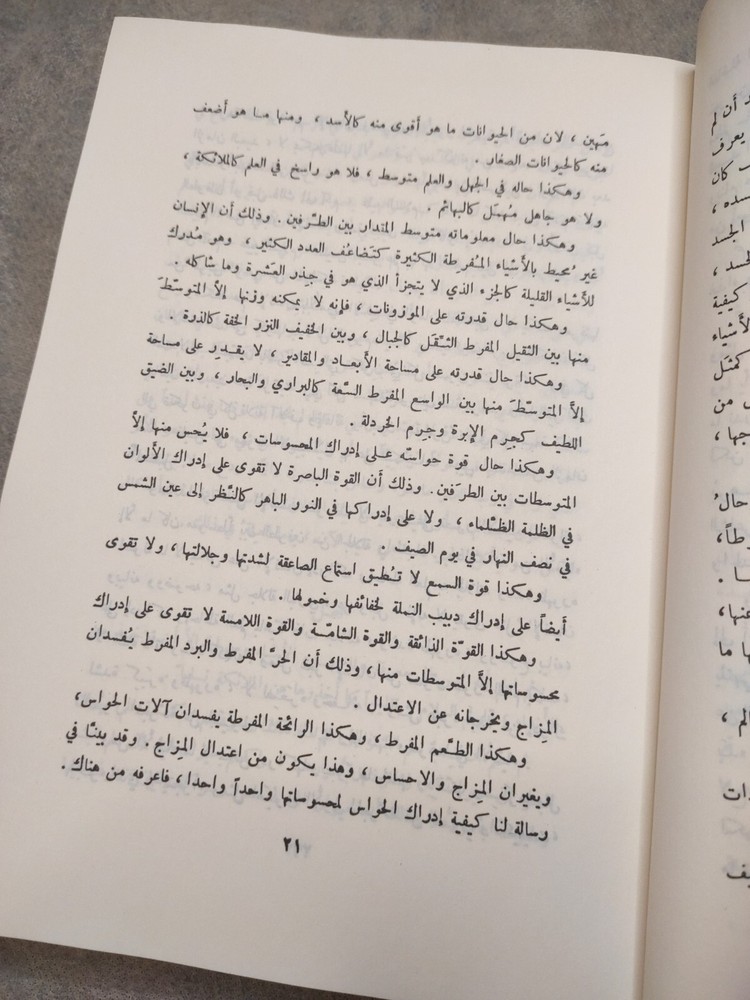 مَهين ، لان من الحيوانات ما هو أقوى منه كالأسد ، ومنها مـا هو أضعف
منه كالحيوانات الصغار .
وهكذا حاله في الجهل والعلم متوسط ، فلا هو راسخ في العلم كالملائكة ،
ولا هو جاهل مُهمَل كالبهائم .
وهكذا حال معلوماته متوسط المقدار بين الطَّرفين . وذلك أن الإنسان
غير مُحيط بالأشياء المُفرِطة الكثيرة كتَضاعُف العدد الكثير ، وهو مُدرك
للأشياء القليلة كالجزء الذي لا يتجزأ الذي هو في جِذر العَشرة وما شاكله .
وهكذا حال قدرته على الموزونات ، فإنه لا يمكنه وزنها إلاَّ المتوسّطَ
منها بين الثقيل المفرط الثِّقَل كالجبال ، وبين الخفيف النزر الخفة كالذرة .
وهكذا حال قدرته على مساحة الأبعـاد والمقادير ، لا يقـدِر على مساحة
إلاَّ المتوسّطَ منها بين الواسع المفرط السَّعة كالبراري والبحار ، وبين الضيق
اللطيف كجِرم الإبرة وجِرم الخردلة .
وهكذا حال قوة حواسّه عـلى إدراك المحسوسات ، فلا يُحس منها إلاَّ
المتوسطات بين الطرَفين . وذلك أن القوة الباصرة لا تقوى على إدراك الألوان
في الظلمة الظَّلماء ، ولا على إدراكها في النور الباهر كالنَّظر إلى عين الشمس
في نصف النهار في يوم الصيف .
وهكذا قوة السمع لا تُطيق استماع الصاعقة لشدتها وجلالتها ، ولا تقوى
أيضاً على إدراك دبيب النملة لخفائها وخمولها .
وهكذا القوّة الذائقة والقوة الشامّـة والقوة اللامسة لا تقوى على إدراك
محسوساتها إلاَّ المتوسطات منها ، وذلك أن الحرَّ المفرط والبرد المفرط يُفسدان
المِزاج ويخرجانه عن الاعتدال .
وهكذا الطَّعم المفرط ، وهكذا الرائحة المفرطة يفسدان آلات الحواس ،
ويغيران المِزاج والاحساس ، وهذا يكون من اعتدال المِزاج . وقد بينّا في
رسالة لنا كيفية إدراك الحواس لمحسوساتها واحداً واحدا ، فاعرفه من هناك .
٢١
د أن لم
يعرف
ب كان
سده ،
الجسد
لجسد ،
كيفية
لأشياء
كمثَل
ض من
جها ،
حالُ
رطاً ،
ـا .
عنها ،
ها ما
الم ،
دات
يف